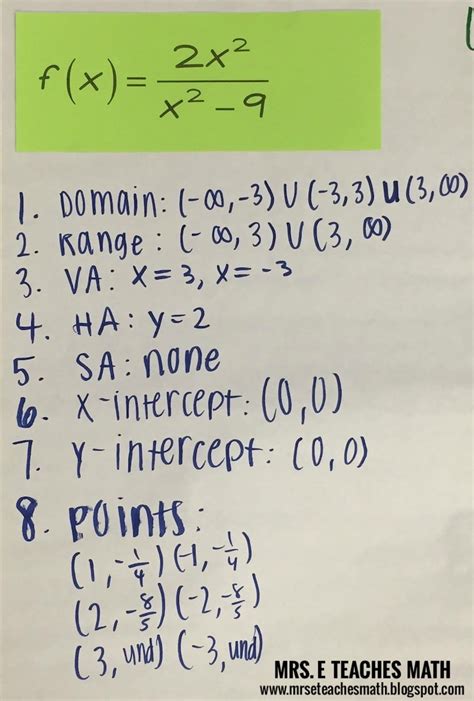 f(x) = 2x² / x² - 9
1. Domain: (-∞,-3) U (-3,3) U (3,∞)
2. Range: (-∞, 3) U (3, ∞)
3. VA: x = 3, x = -3
4. HA: y = 2
5. SA: none
6. X-intercept: (0,0)
7. Y-intercept: (0,0)
8. Points:
(1, -1/4) (-1, -1/4)
(2, -8/5) (-2, -8/5)
(3, und) (-3, und)
MRS. E TEACHES MATH
www.mrseteachesmath.blogspot.com